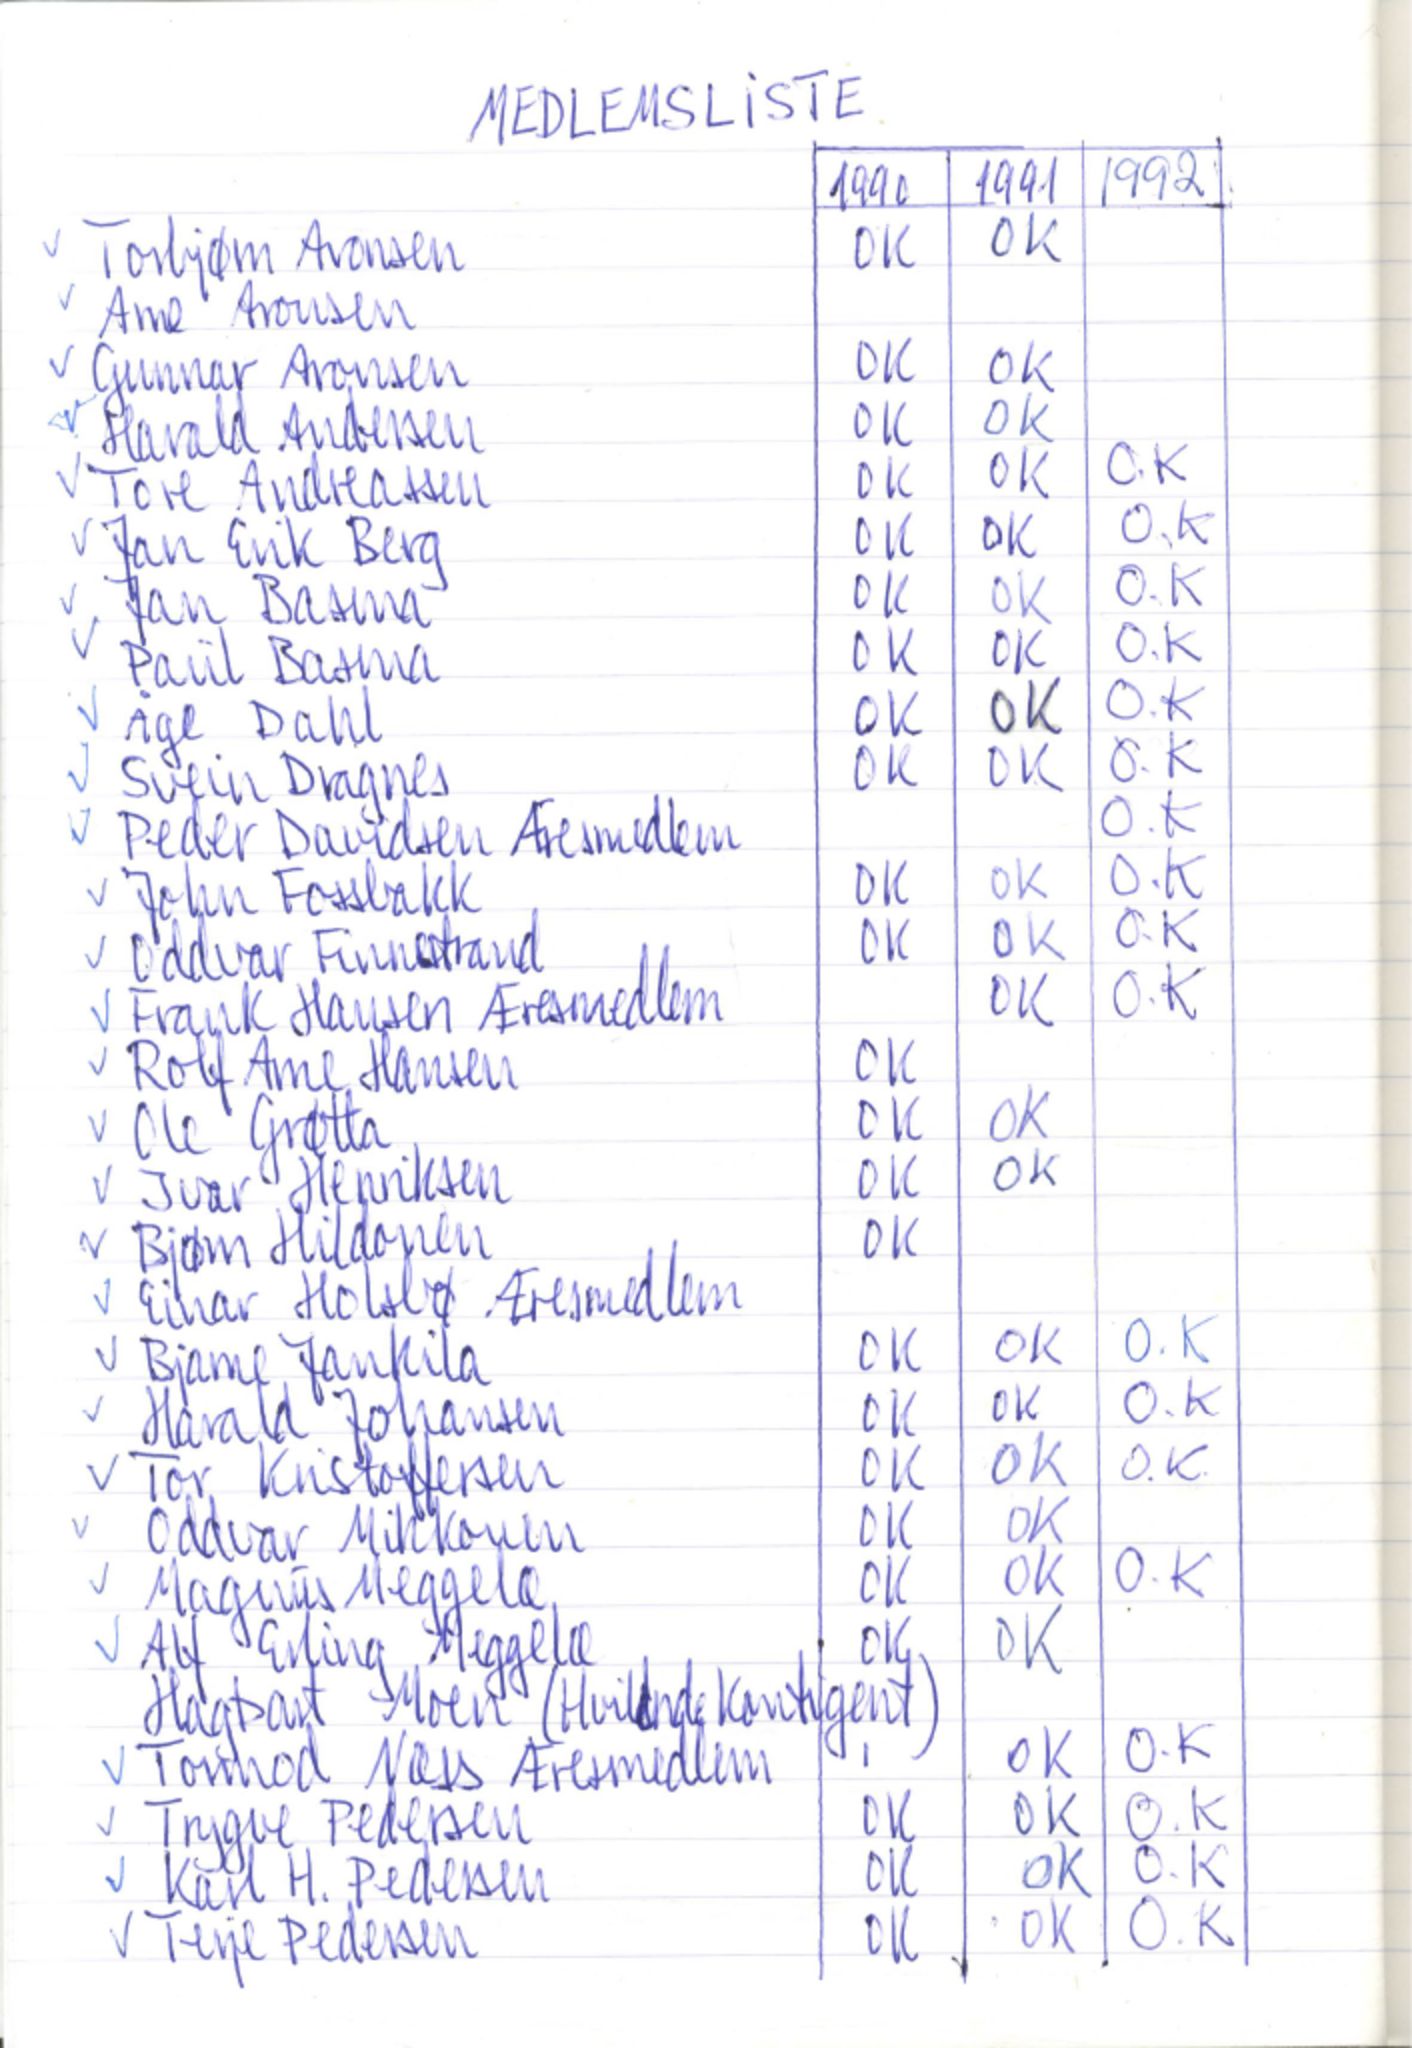 MEDLEMSLISTE
1990 1991 1992
✓ Torbjørn Aronsen OK OK
✓ Arne Aronsen
✓ Gunnar Aronsen OK OK
✓ Harald Andersen OK OK
✓ Tore Andreassen OK OK O.K
✓ Jan Erik Berg OK OK O.K
✓ Jan Basma OK OK O.K
✓ Paul Basma OK OK O.K
✓ Åge Dahl OK OK O.K
✓ Svein Dragnes OK OK O.K
✓ Peder Davidsen Æresmedlem O.K
✓ John Fossbakk OK OK O.K
✓ Oddvar Finnstrand OK OK O.K
✓ Frank Hansen Æresmedlem OK O.K
✓ Rolf Arne Hansen OK
✓ Ole Grøtta OK OK
✓ Ivar Henriksen OK OK
✓ Bjørn Hildonen OK
✓ Einar Holsbø Æresmedlem
✓ Bjarne Jankila OK OK O.K
✓ Harald Johansen OK OK O.K
✓ Tor Kristoffersen OK OK O.K.
✓ Oddvar Mikkonen OK OK
✓ Magnus Meggelæ OK OK O.K
✓ Alf Erling Meggelæ OK OK
Hagbart Moen (Hvilende Kontigent)
✓ Tormod Næss Æresmedlem OK O.K
✓ Trygve Pedersen OK OK O.K
✓ Karl H. Pedersen OK OK O.K
✓ Terje Pedersen OK OK O.K